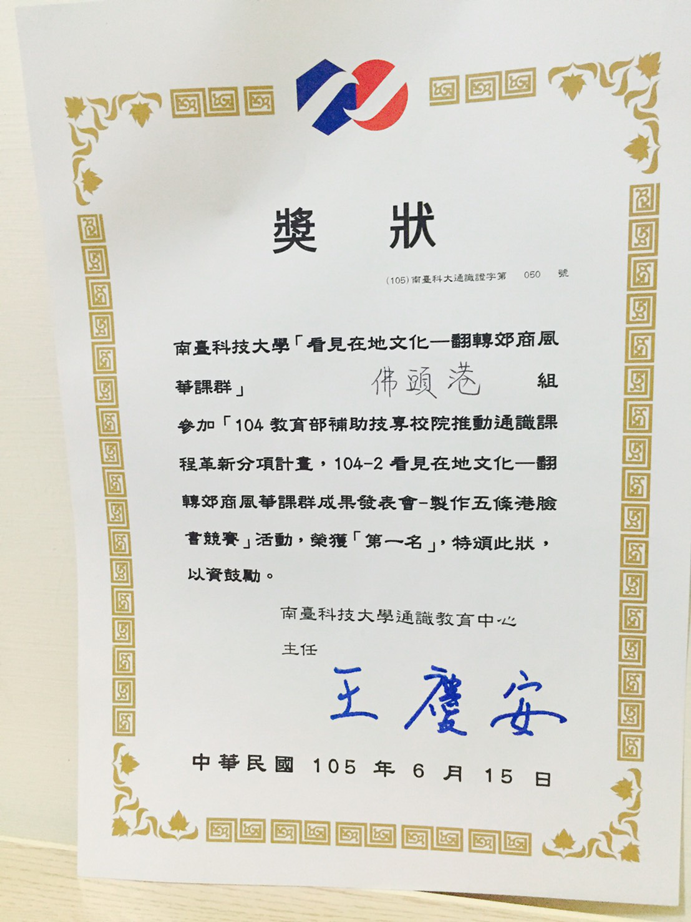 獎 狀
(105)南臺科大通識證字第 050 號
南臺科技大學「看見在地文化—翻轉郊商風
華課群」 佛頭港 組
參加「104 教育部補助技專校院推動通識課
程革新分項計畫，104-2 看見在地文化—翻
轉郊商風華課群成果發表會-製作五條港臉
書競賽」活動，榮獲「第一名」，特頒此狀，
以資鼓勵。
南臺科技大學通識教育中心
主任
王慶安
中華民國 105 年 6 月 15 日